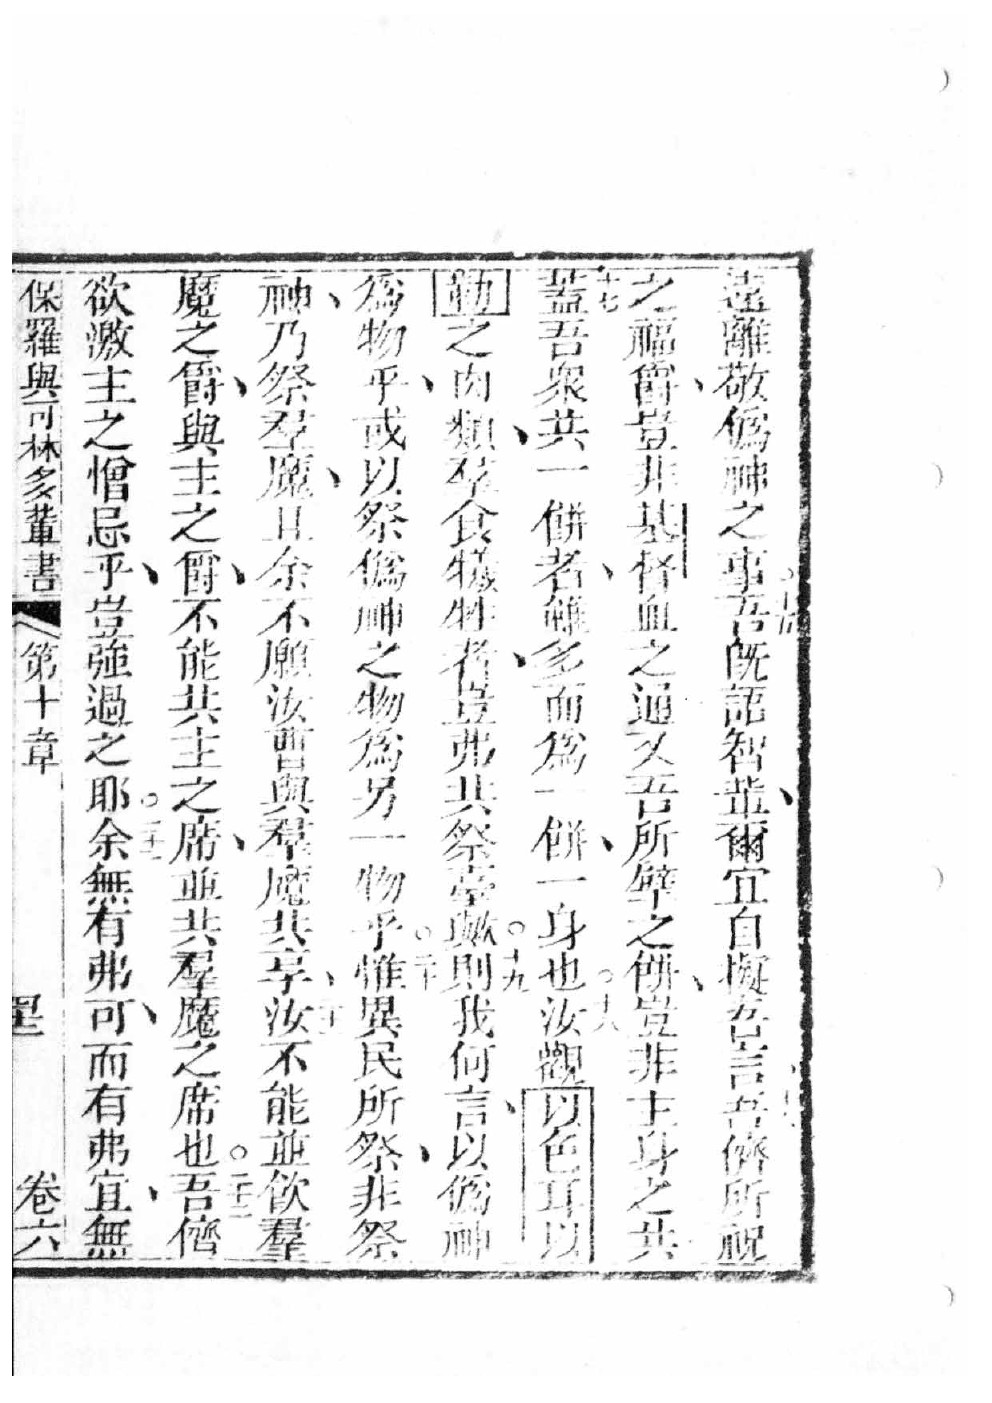 遠離敬僞神之事吾旣語智並爾宜自擬吾言吾儕所祝
之福爵豈非基督血之通又吾所擘之餅豈非主身之共
十七
蓋吾衆共一餅者雖多而爲一餅一身也汝觀以色耳以
十八
勒之肉類羣食犧牲者豈弗共祭臺歟則我何言以僞神
十九
爲物乎或以祭僞神之物爲另一物乎惟異民所祭非祭
二十
神乃祭羣魔且余不願汝曹與羣魔共享汝不能並飲羣
魔之爵與主之爵不能共主之席並共羣魔之席也吾儕
二十二
欲激主之憎忌乎豈強過之耶余無有弗可而有弗宜無
二十三
保羅與可林多輩書 第十章 卷六